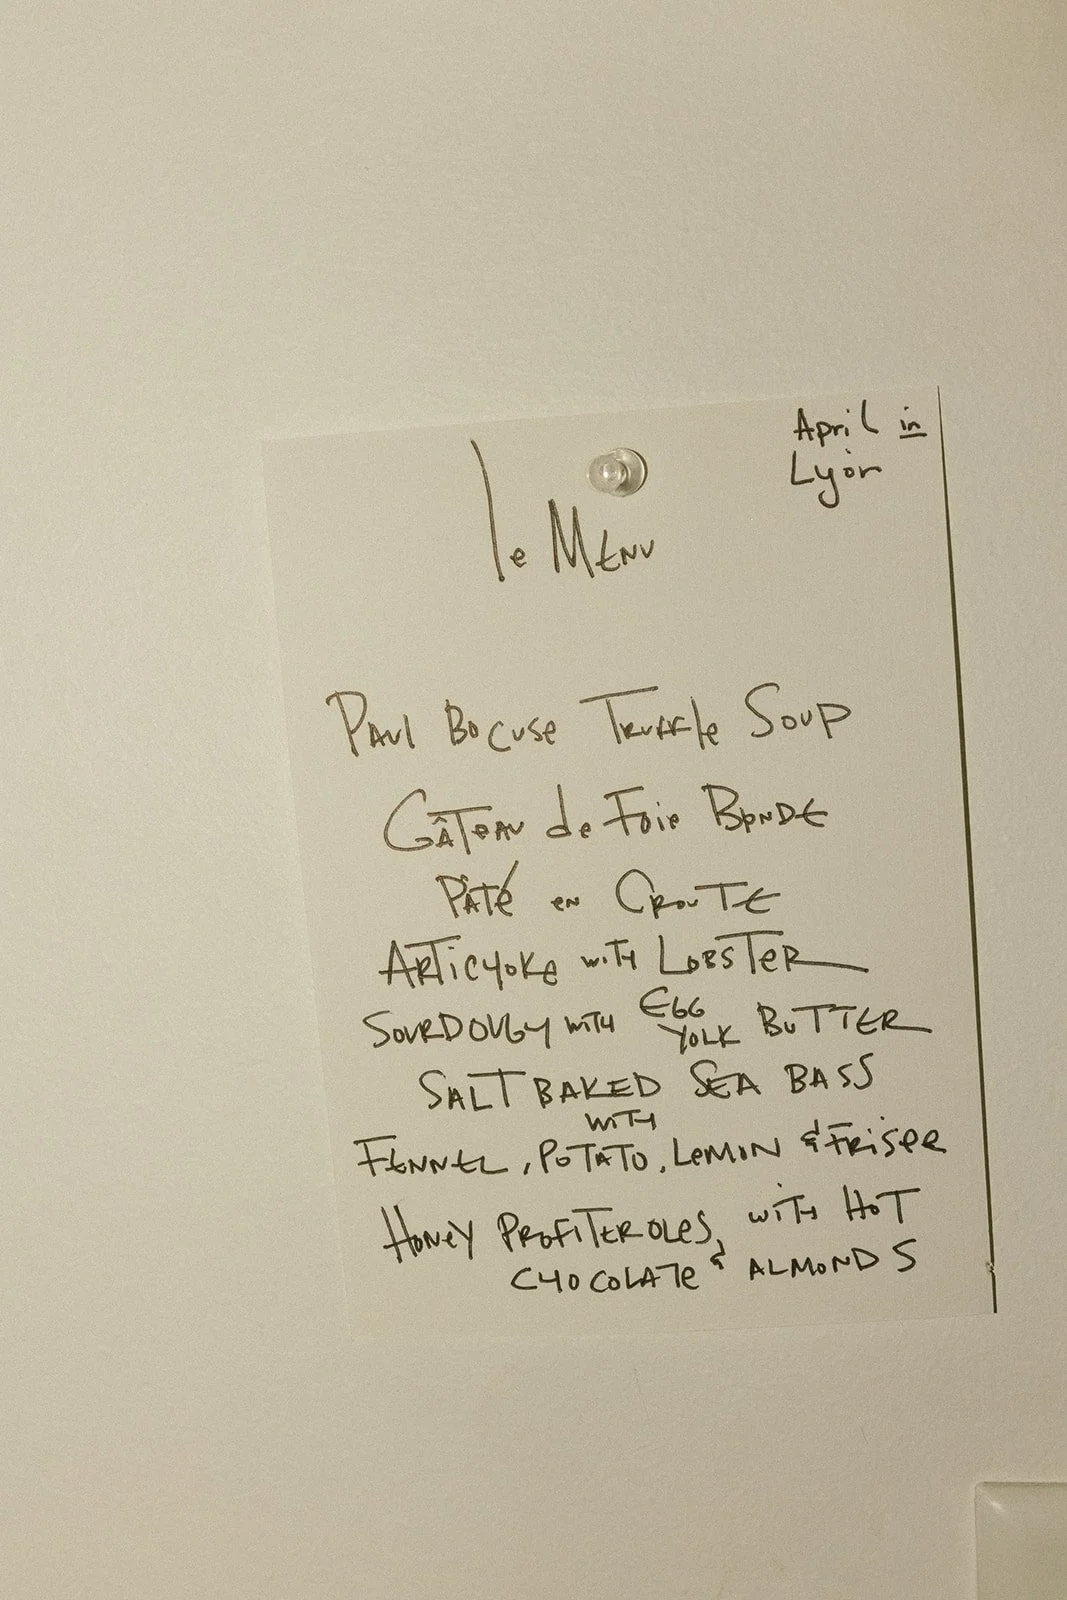 April in
Lyon
le Menu
Paul Bocuse Truffle Soup
Gâteau de Foie Bonde
Pâté en Croute
Artichoke with Lobster
Sourdough with Egg
Yolk Butter
Salt Baked Sea Bass
with
Fennel, Potato, Lemon & Frisee
Honey Profiteroles, with Hot
Chocolate & Almonds